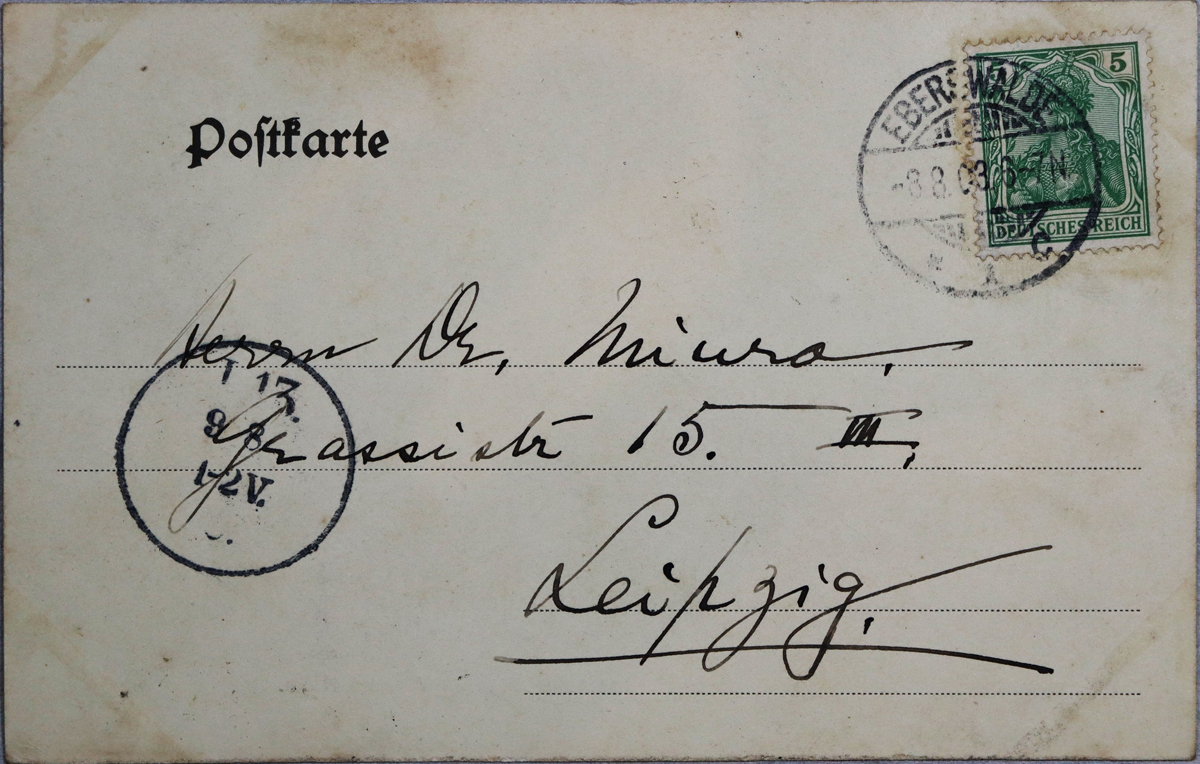 Postkarte
5
EBERSWALDE
-8.8.03.6-7N.
* 1 c
DEUTSCHES REICH
Herrn Dr. Miura.
Grassistr 15. III.
Leipzig.
1-2V.